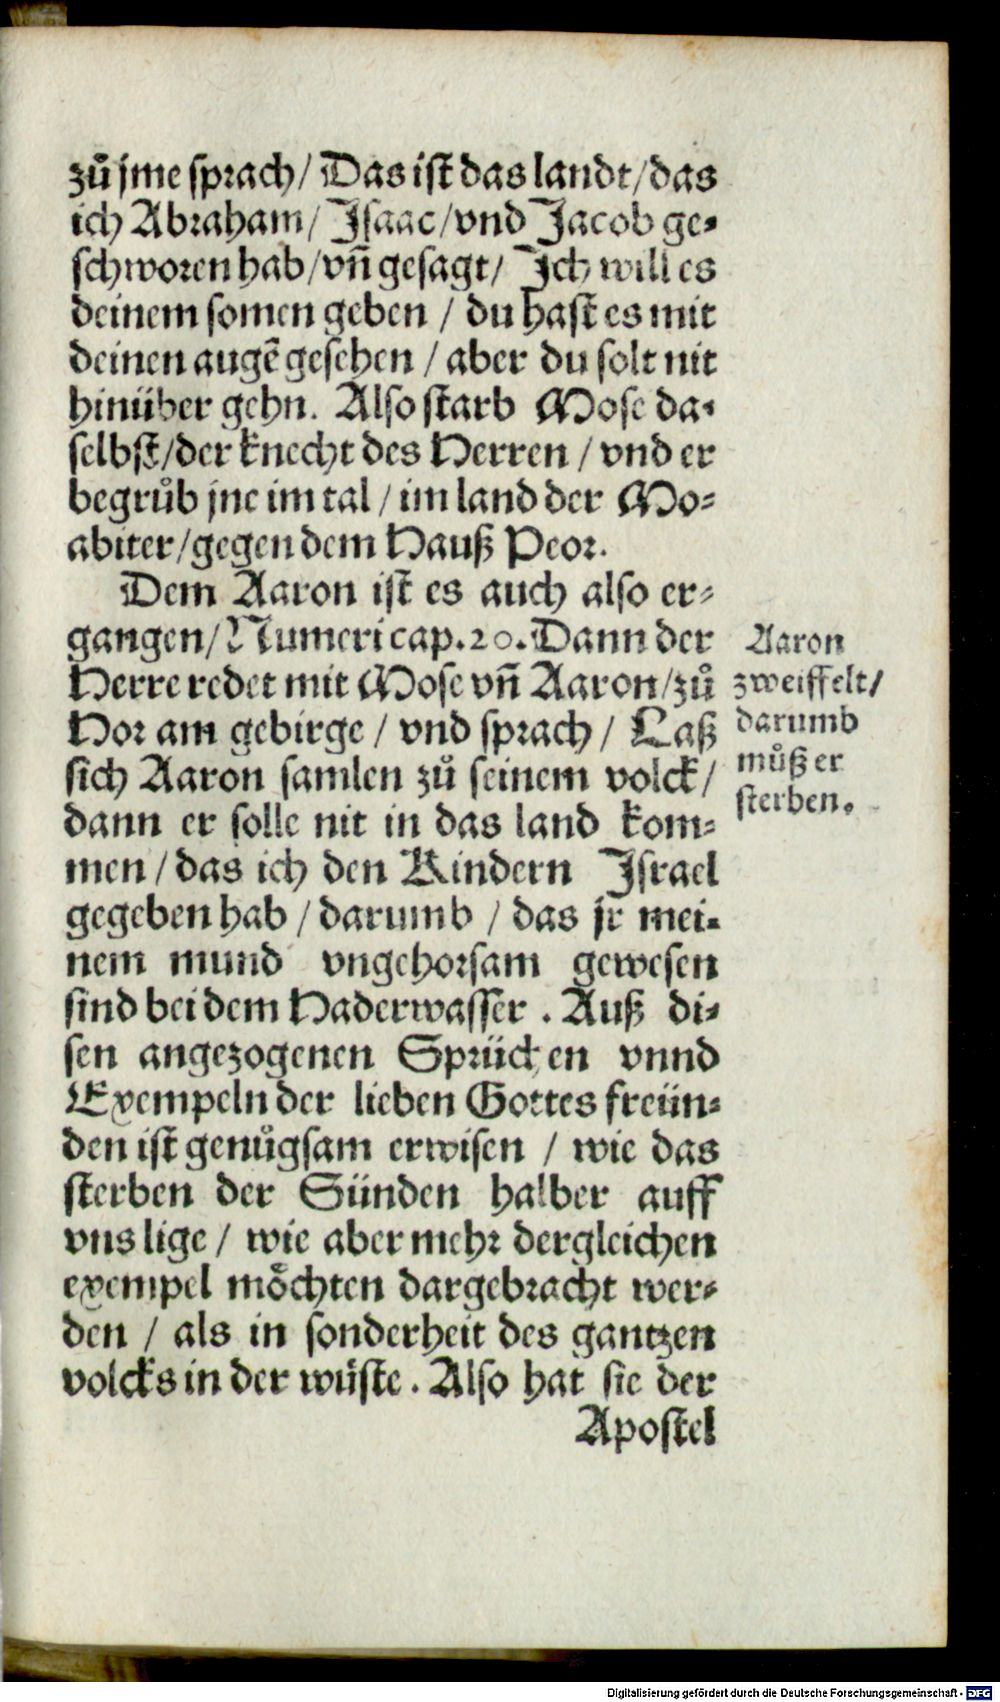 zů jme sprach / Das ist das landt / das
ich Abraham / Isaac / vnd Jacob ge⸗
schworen hab / vñ gesagt / Ich will es
deinem somen geben / du hast es mit
deinen augẽ gesehen / aber du solt nit
hinüber gehn. Also starb Mose da⸗
selbst / der knecht des Herren / vnd er
begrůb jne im tal / im land der Mo⸗
abiter / gegen dem Hauß Peor.
Dem Aaron ist es auch also er⸗
gangen / Numeri cap. 20. Dann der
Herre redet mit Mose vñ Aaron / zů
Hor am gebirge / vnd sprach / Laß
sich Aaron samlen zů seinem volck /
dann er solle nit in das land kom⸗
men / das ich den Kindern Israel
gegeben hab / darumb / das jr mei⸗
nem mund vngehorsam gewesen
sind bei dem Haderwasser. Auß di⸗
sen angezogenen Sprüchen vnnd
Exempeln der lieben Gottes freün⸗
den ist genůgsam erwisen / wie das
sterben der Sünden halber auff
vns lige / wie aber mehr dergleichen
exempel möchten dargebracht wer⸗
den / als in sonderheit des gantzen
volcks in der wüste. Also hat sie der
Apostel
Aaron
zweiffelt /
darumb
můß er
sterben.
Digitalisierung gefördert durch die Deutsche Forschungsgemeinschaft - DFG